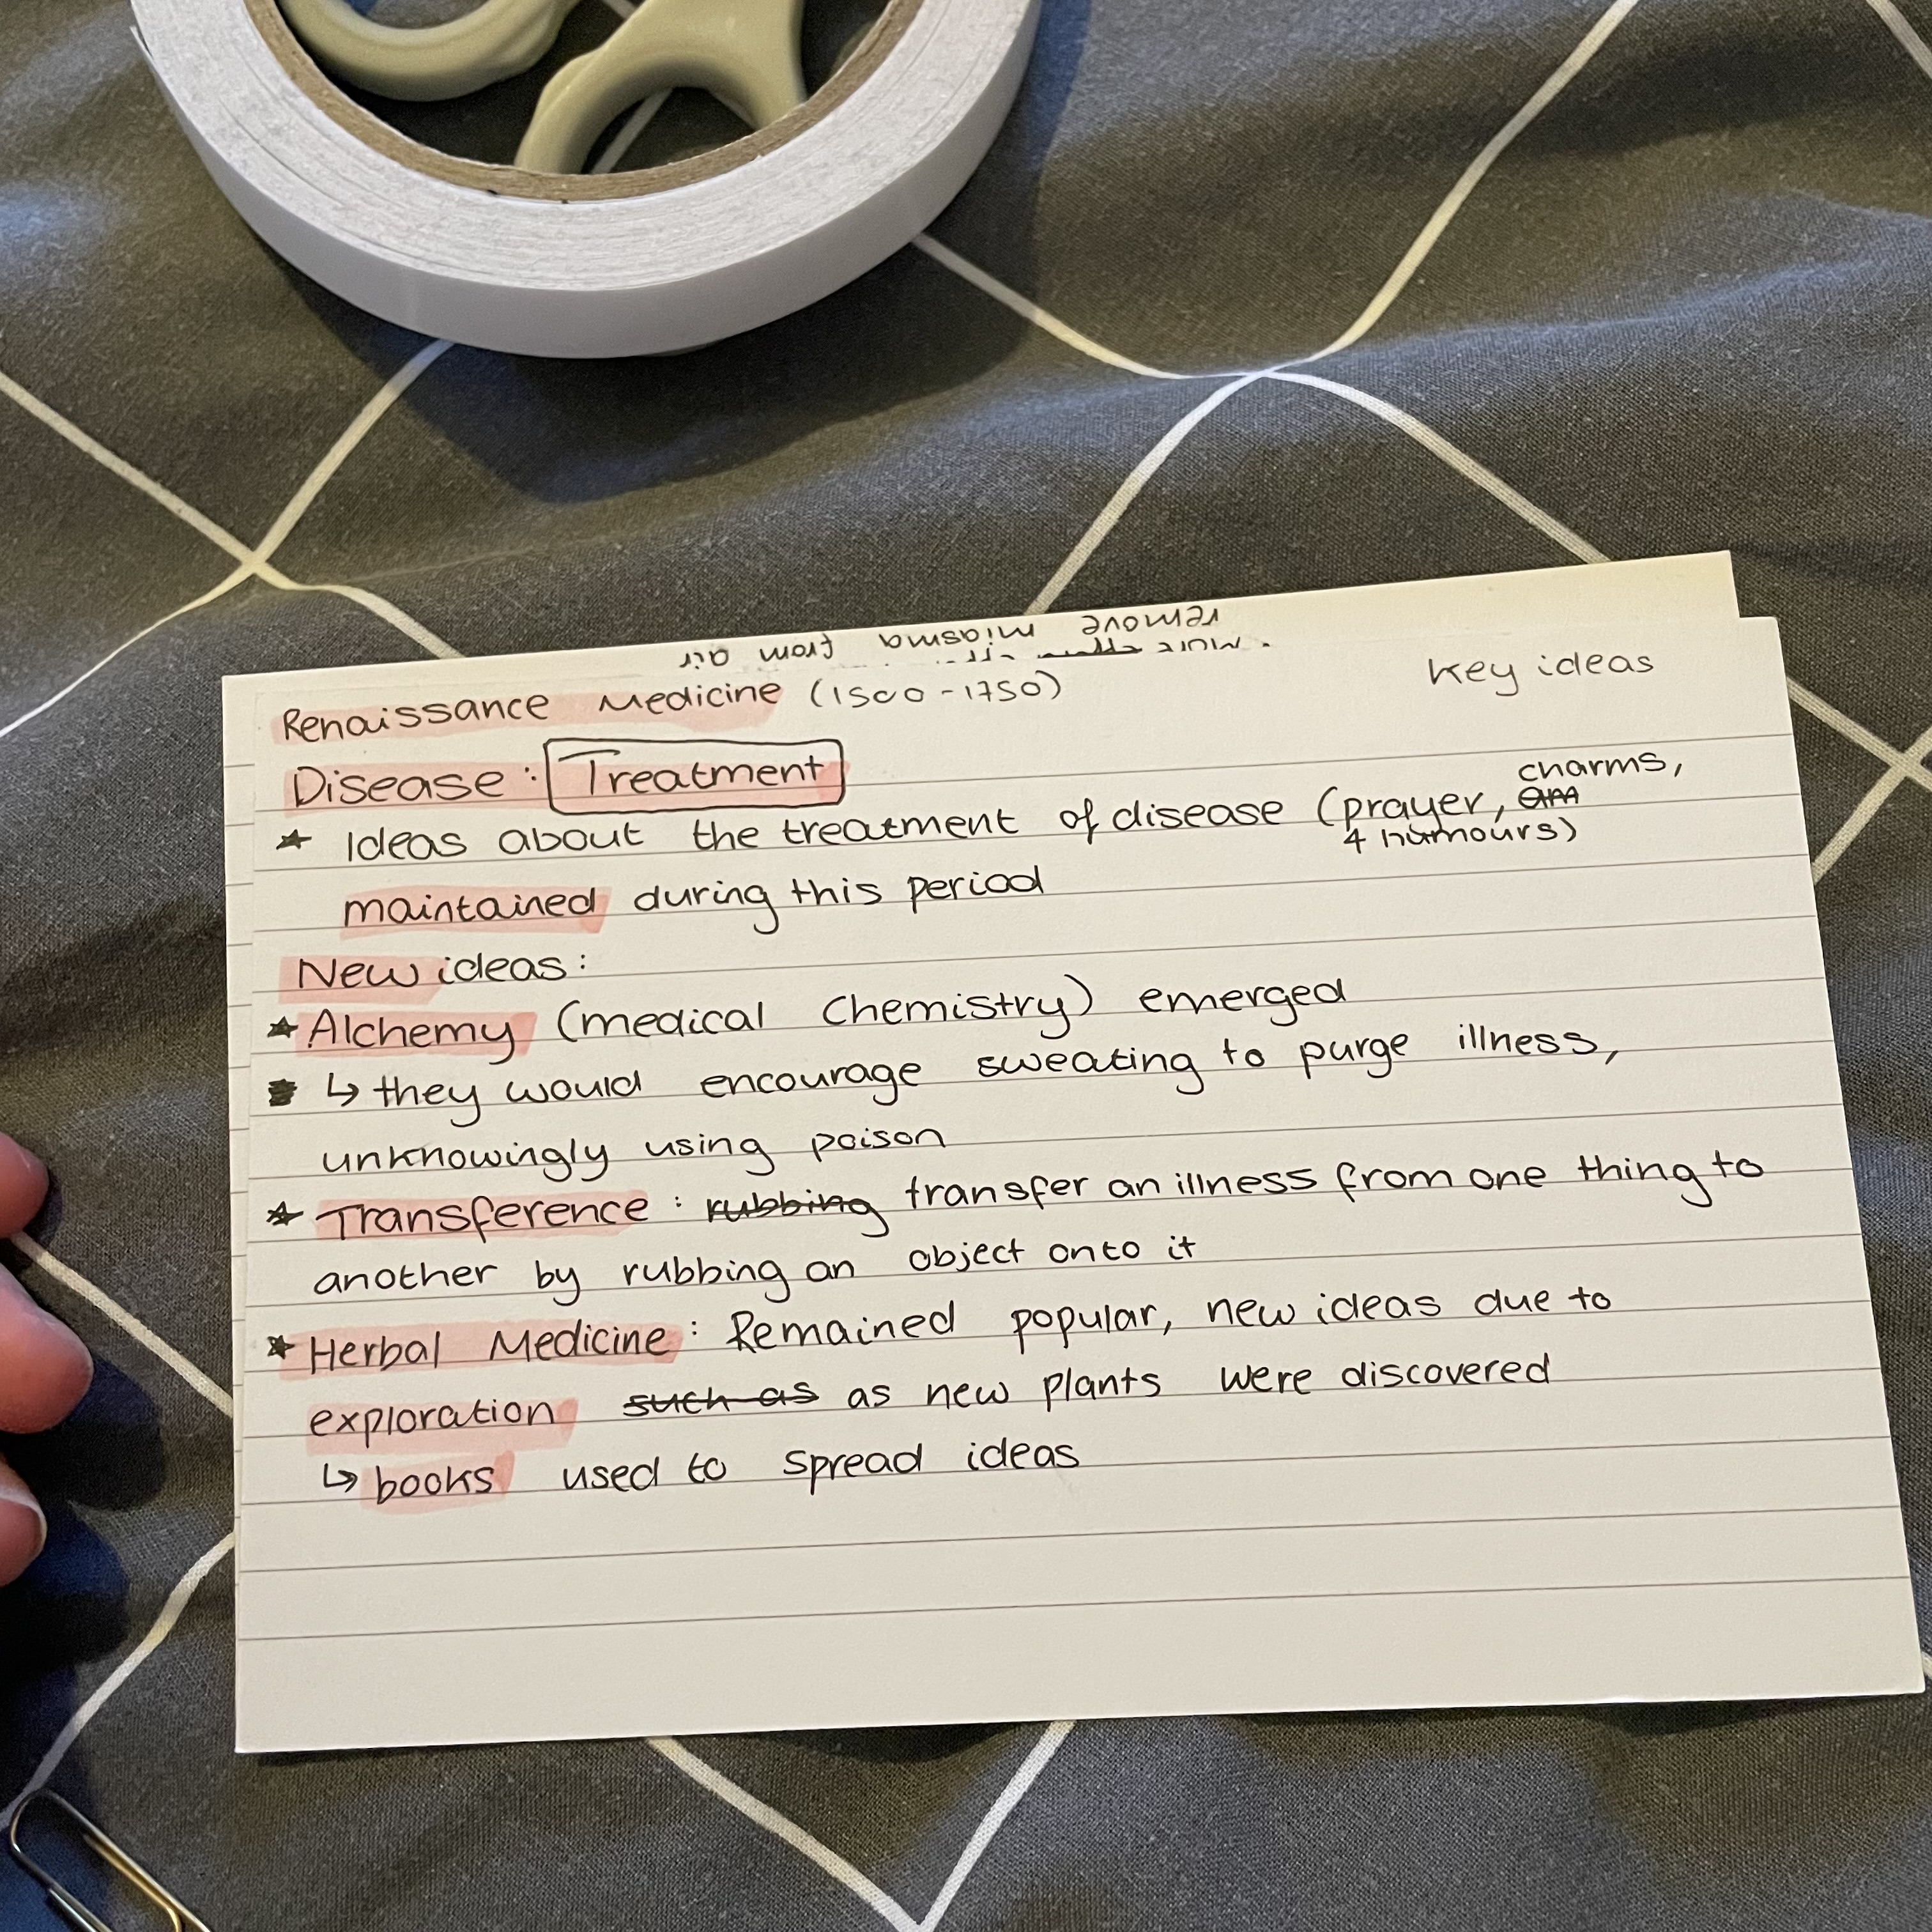 remove miasma from air
Renaissance Medicine (1500-1750)
key ideas
Disease: Treatment
★ Ideas about the treatment of disease (prayer, charms,
4 humours)
maintained during this period
New ideas:
★ Alchemy (medical Chemistry) emerged
↳ they would encourage sweating to purge illness,
unknowingly using poison
★ Transference: rubbing transfer an illness from one thing to
another by rubbing an object onto it
★ Herbal Medicine: Remained popular, new ideas due to
exploration such as as new plants were discovered
↳ books used to spread ideas